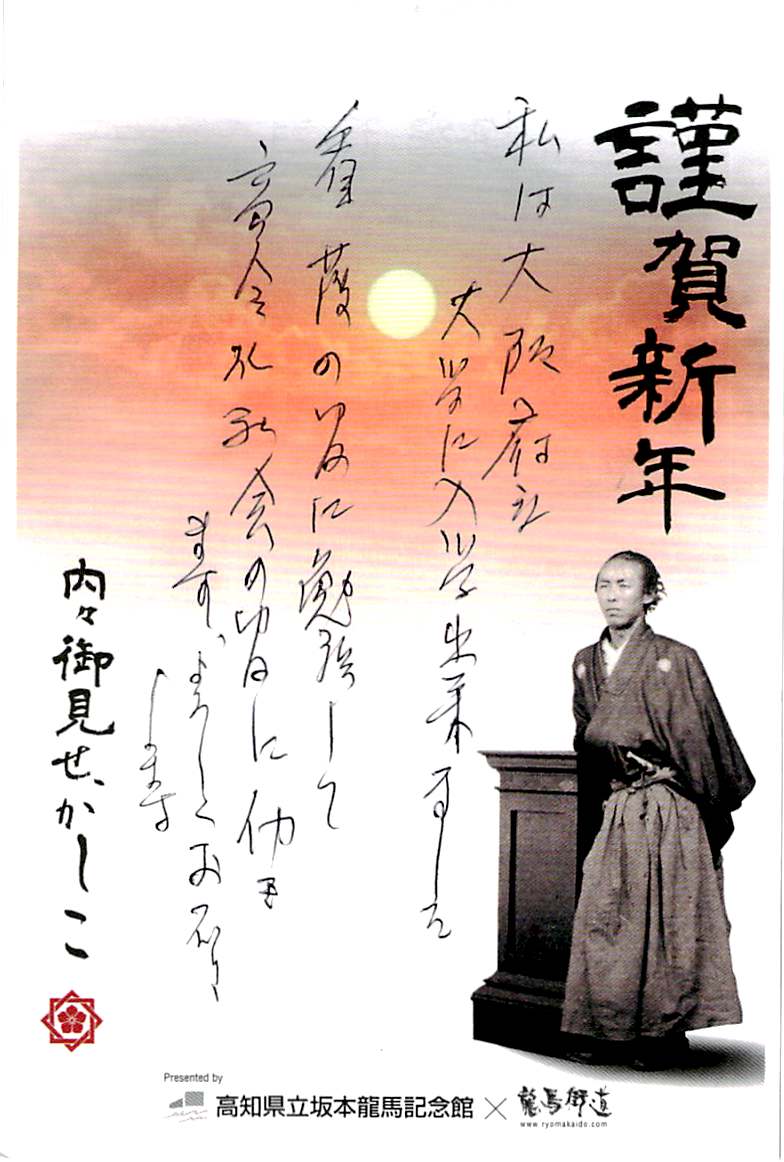 謹賀新年
私は大阪府立
大学に入学出来ました
看護の為に勉強して
高令化社会の為に働き
ます、よろしくお願い
します
内々御見せ、かしこ
Presented by
高知県立坂本龍馬記念館 × 龍馬街道
www.ryomakaido.com